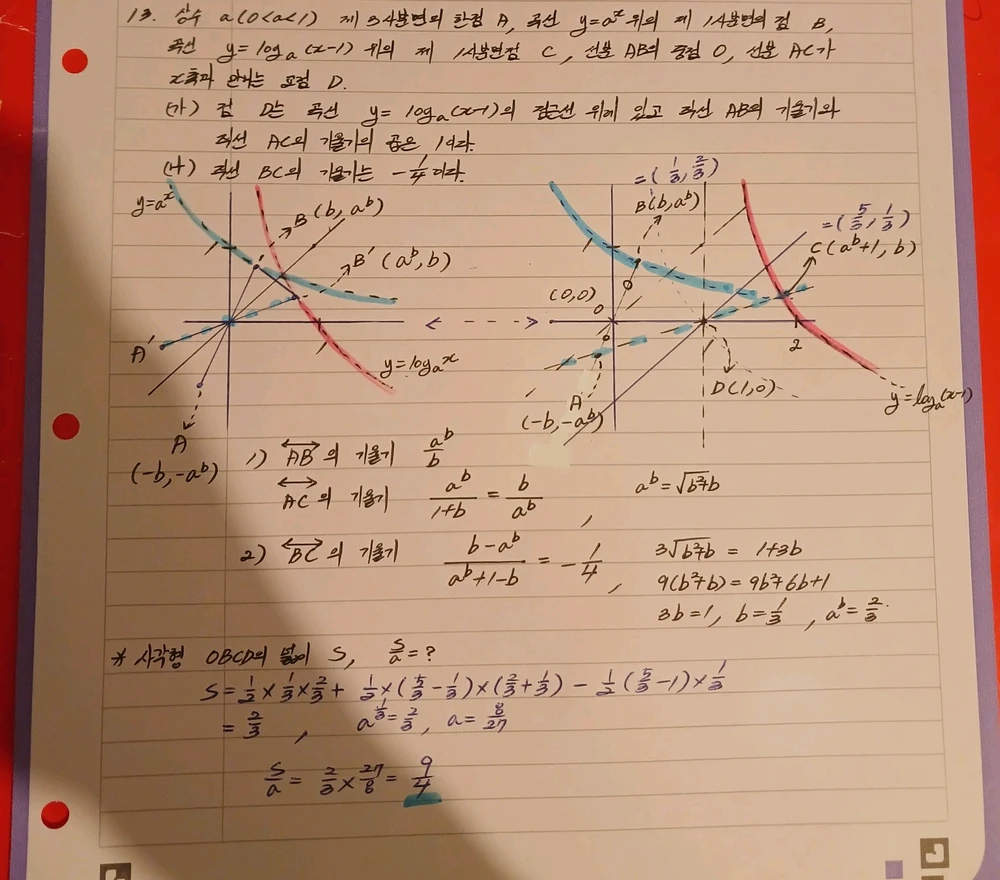 13. 상수 a(0<a<1) 제 3사분면의 한점 A, 곡선 y=a^x 위의 제 1사분면의 점 B,
곡선 y=log_a(x-1) 위의 제 1사분면점 C, 선분 AB의 중점 O, 선분 AC가
x축과 만나는 교점 D.
(가) 점 D는 곡선 y=log_a(x-1)의 점근선 위에 있고 직선 AB의 기울기와
직선 AC의 기울기의 곱은 1이다.
(나) 직선 BC의 기울기는 -1/4이다.
y=a^x
B(b, a^b)
B'(a^b, b)
A'
y=log_a x
A
(-b, -a^b)
=(1/3, 2/3)
B(b, a^b)
=(5/3, 1/3)
C(a^b+1, b)
(0,0)
O
2
D(1,0)
A
(-b, -a^b)
y=log_a(x-1)
1) AB의 기울기 a^b/b
AC의 기울기 a^b/(1+b) = b/a^b , a^b=√(b²+b)
2) BC의 기울기 (b-a^b)/(a^b+1-b) = -1/4 , 3√(b²+b) = 1+3b
9(b²+b) = 9b²+6b+1
3b=1, b=1/3 , a^b=2/3
* 사각형 OBCD의 넓이 S, S/a=?
S=1/2×1/3×2/3+ 1/2×(5/3-1/3)×(2/3+1/3) - 1/2(5/3-1)×1/3
= 2/3 , a^(1/3)=2/3, a=8/27
S/a = 2/3×27/8= 9/4